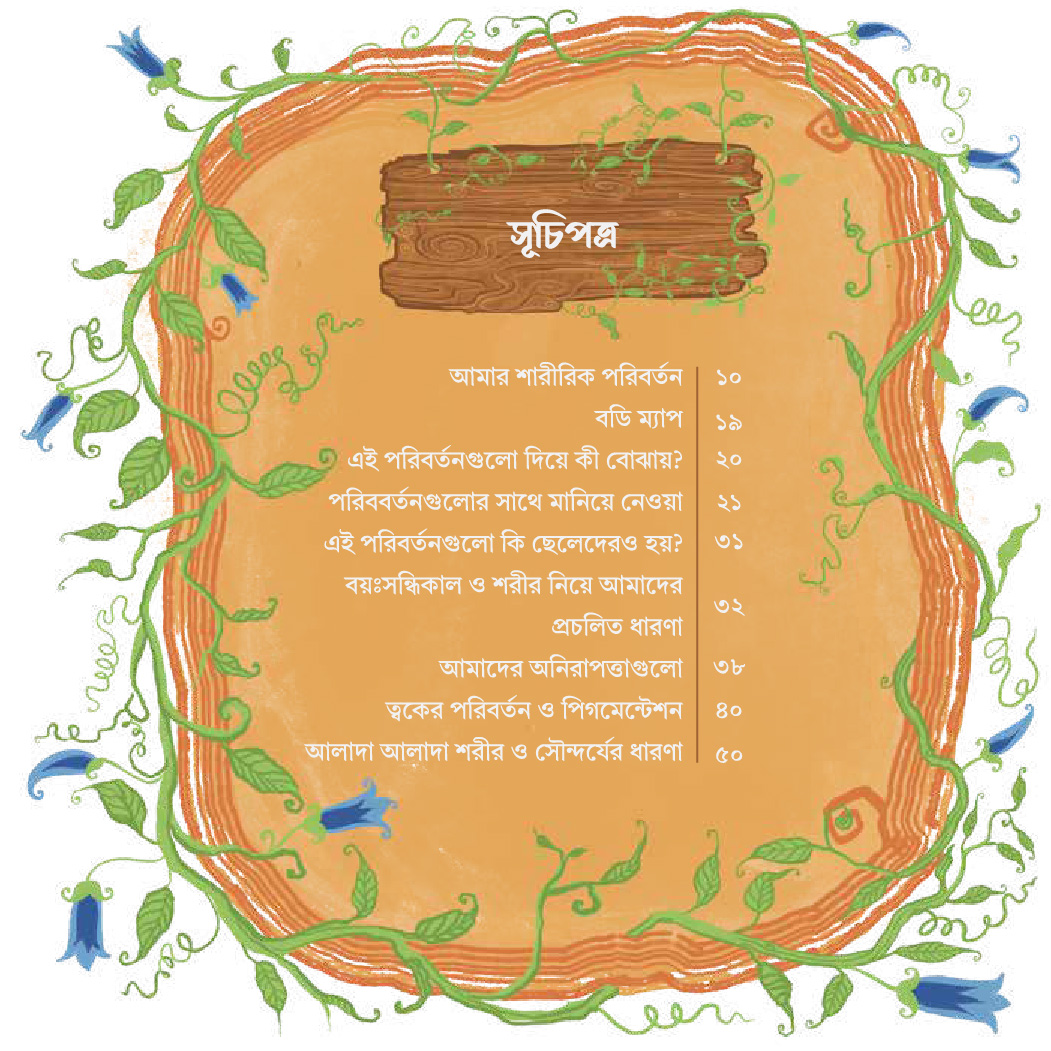 সূচিপত্র
আমার শারীরিক পরিবর্তন ১০
বডি ম্যাপ ১৯
এই পরিবর্তনগুলো দিয়ে কী বোঝায়? ২০
পরিববর্তনগুলোর সাথে মানিয়ে নেওয়া ২১
এই পরিবর্তনগুলো কি ছেলেদেরও হয়? ৩১
বয়ঃসন্ধিকাল ও শরীর নিয়ে আমাদের
প্রচলিত ধারণা ৩২
আমাদের অনিরাপত্তাগুলো ৩৮
ত্বকের পরিবর্তন ও পিগমেন্টেশন ৪০
আলাদা আলাদা শরীর ও সৌন্দর্যের ধারণা ৫০